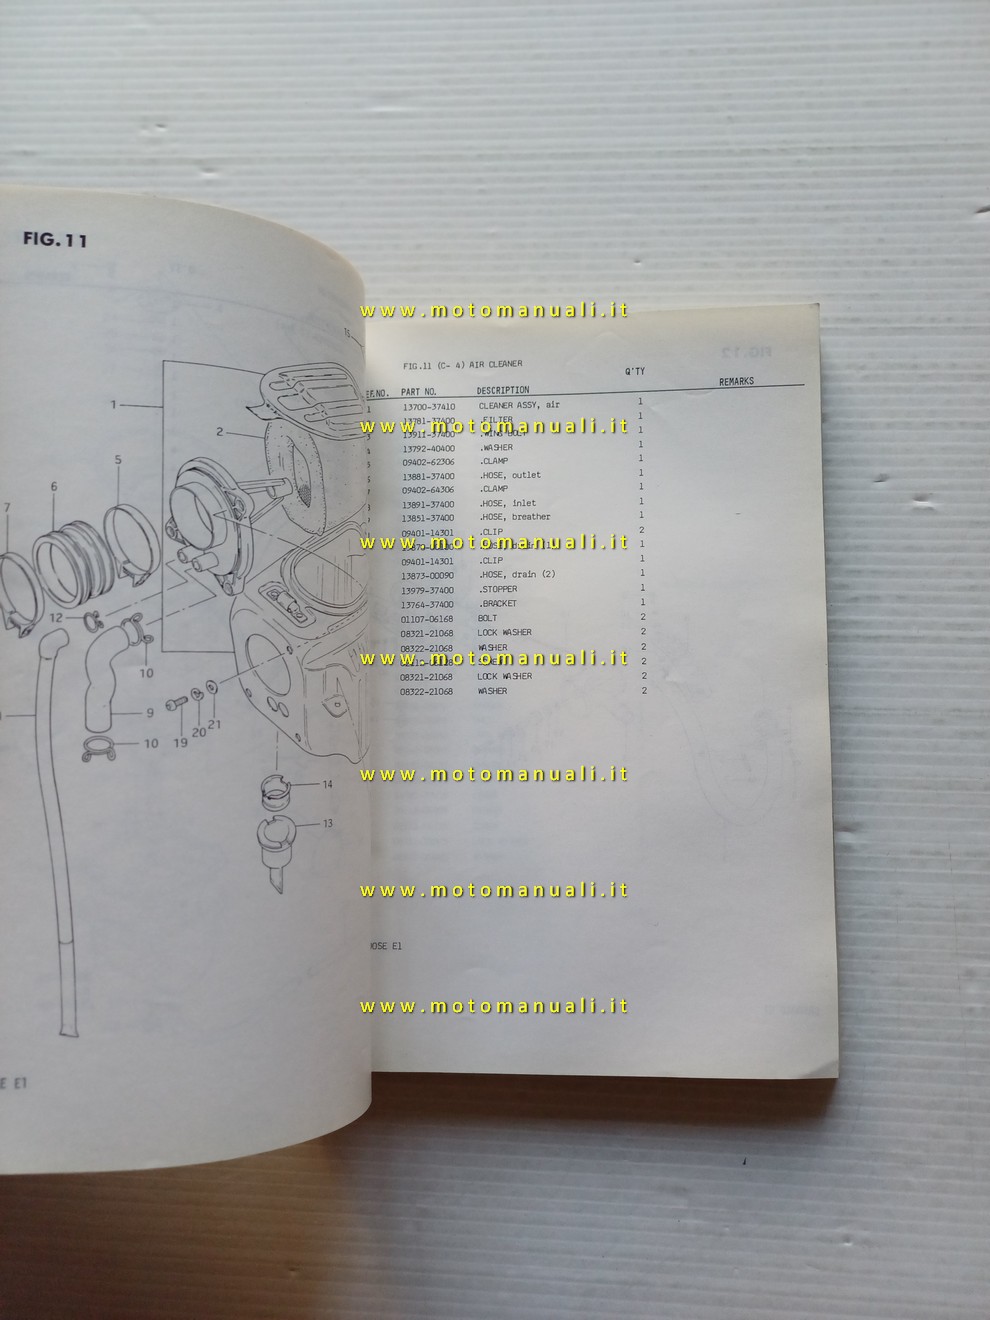 FIG.11
16
1
2
5
6
7
12
10
9
10
19
20
21
14
13
E E1
www.motomanuali.it
FIG.11 (C- 4) AIR CLEANER
Q'TY
EF.NO. PART NO. DESCRIPTION REMARKS
1 13700-37410 CLEANER ASSY, air 1
13781-37400 .FILTER 1
www.motomanuali.it
3 13911-37400 .WING BOLT 1
4 13792-40400 .WASHER 1
5 09402-62306 .CLAMP 1
6 13881-37400 .HOSE, outlet 1
7 09402-64306 .CLAMP 1
8 13891-37400 .HOSE, inlet 1
9 13851-37400 .HOSE, breather 1
09401-14301 .CLIP 2
www.motomanuali.it
1
09401-14301 .CLIP 1
13873-00090 .HOSE, drain (2) 1
13979-37400 .STOPPER 1
13764-37400 .BRACKET 1
01107-06168 BOLT 2
08321-21068 LOCK WASHER 2
08322-21068 WASHER 2
www.motomanuali.it
2
08321-21068 LOCK WASHER 2
08322-21068 WASHER 2
www.motomanuali.it
www.motomanuali.it
OSE E1
www.motomanuali.it